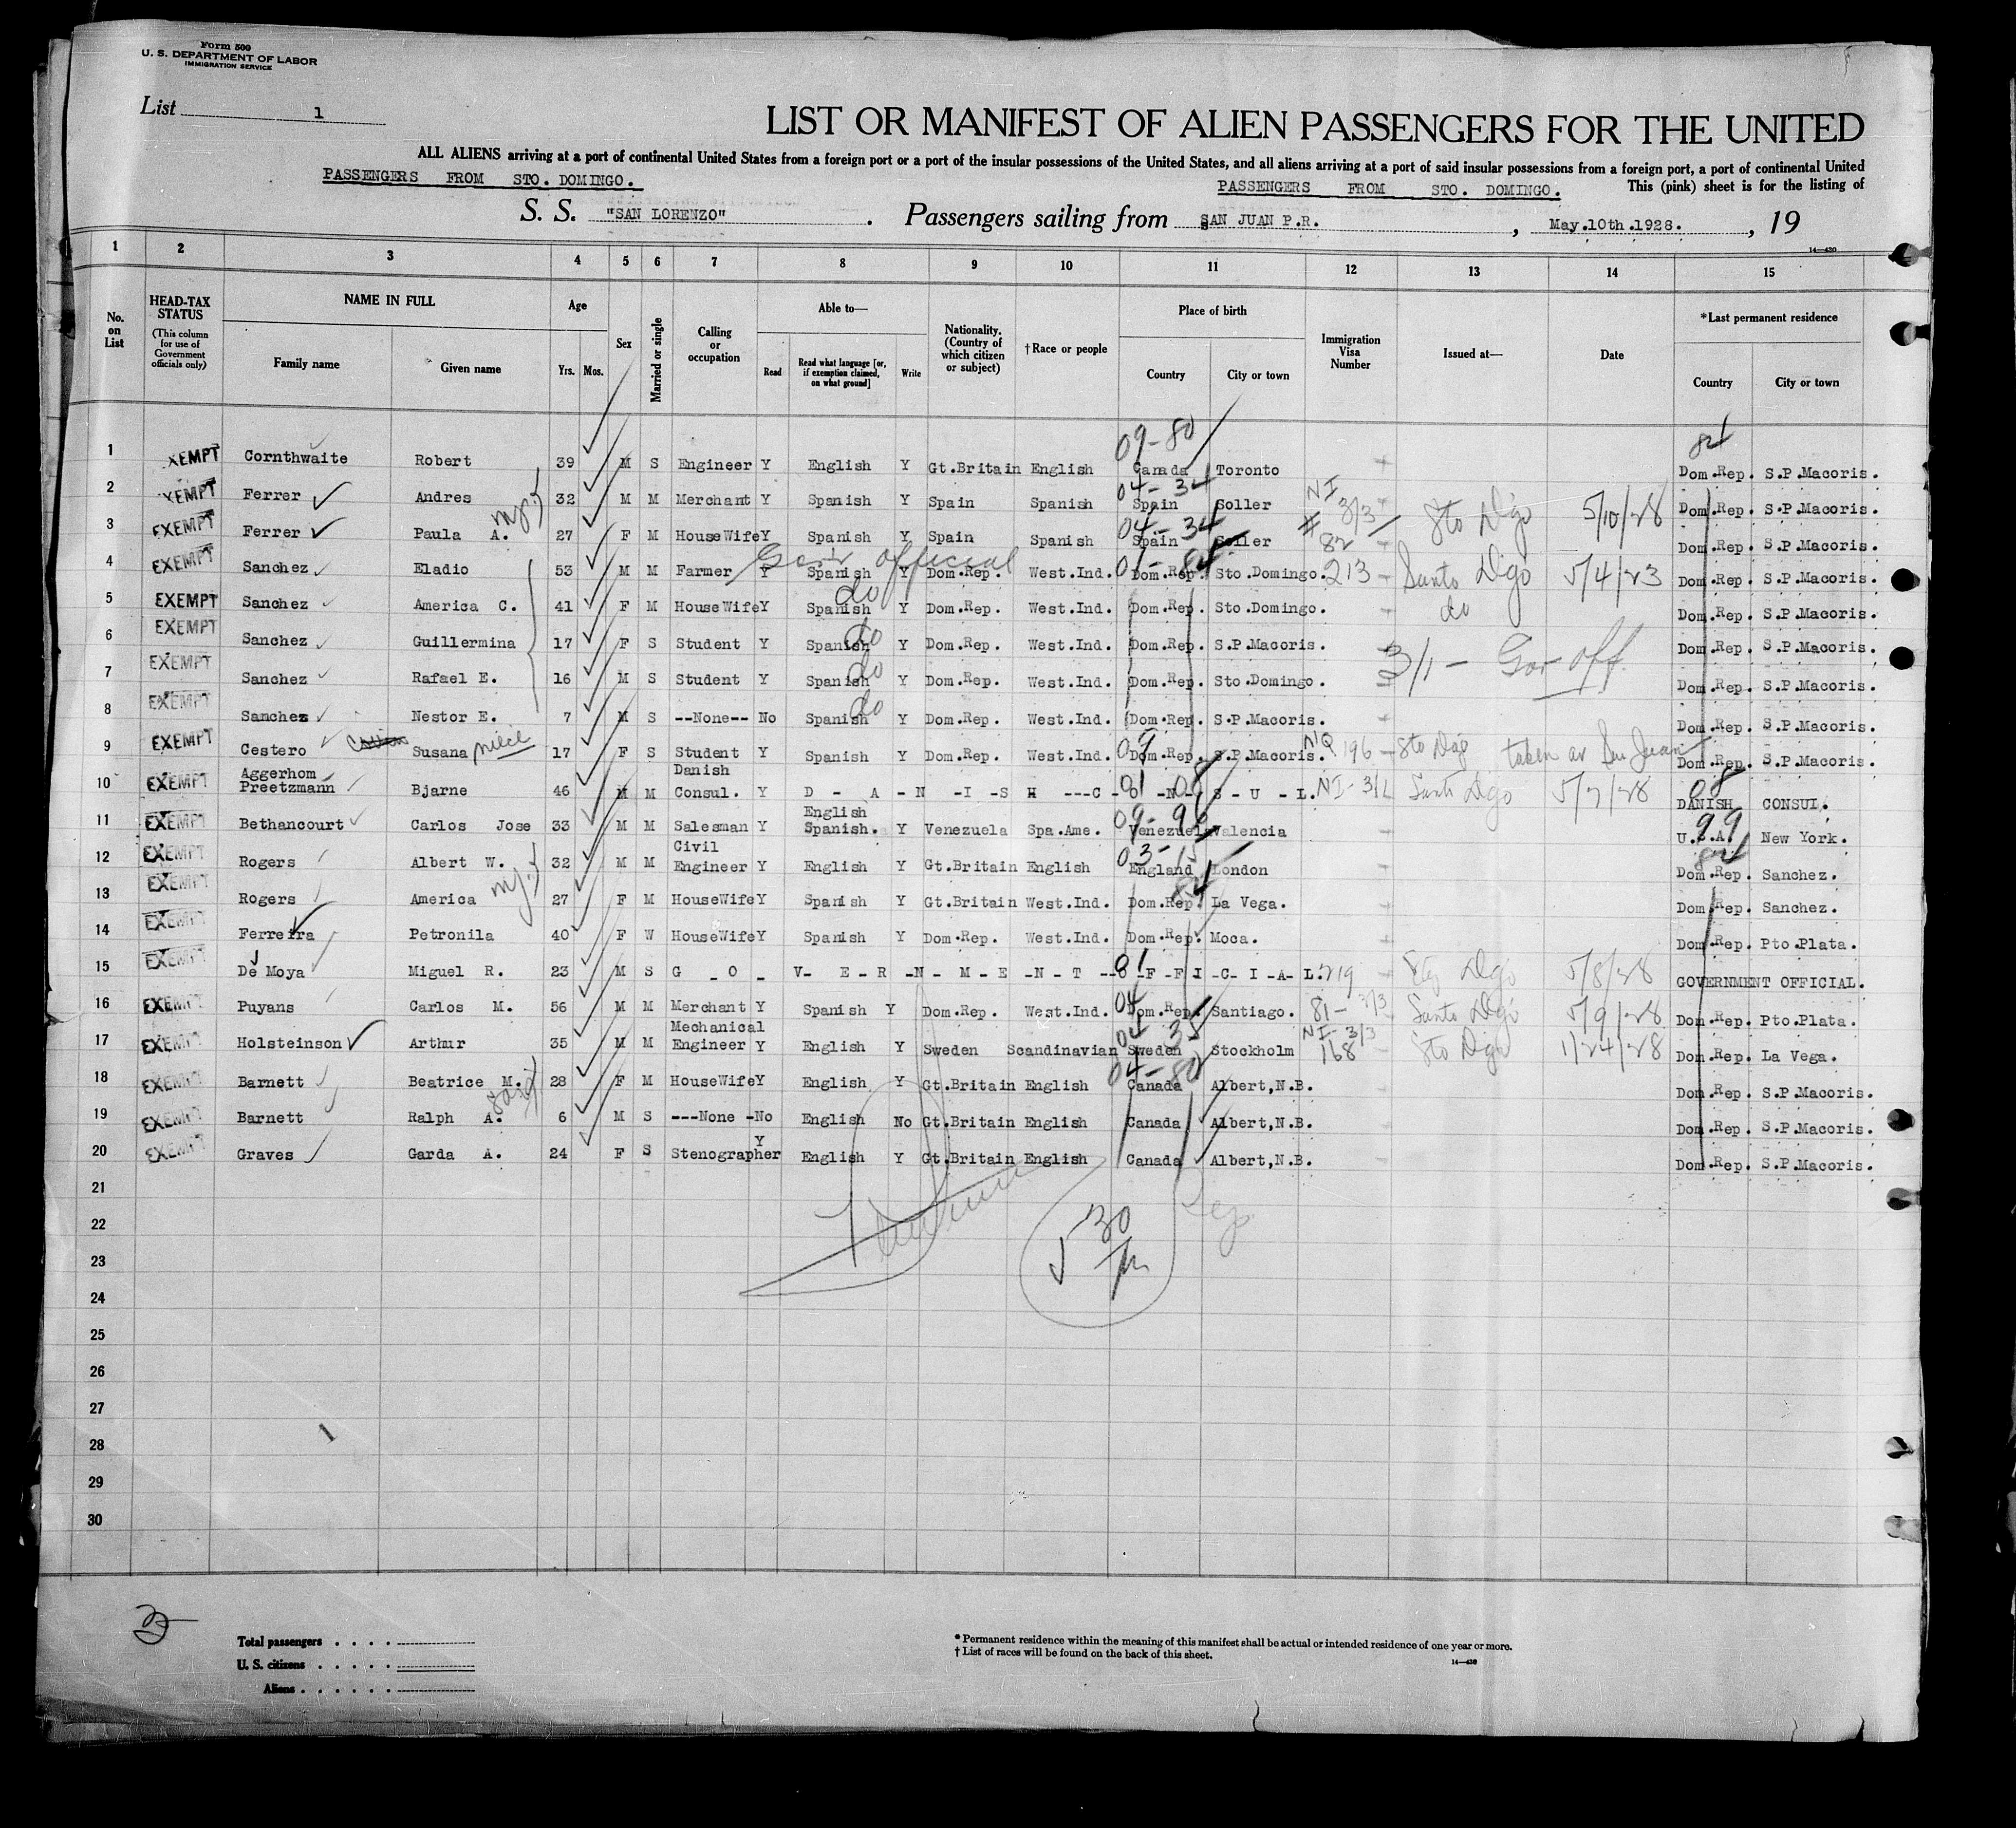 Form 500
U. S. DEPARTMENT OF LABOR
IMMIGRATION SERVICE
List 1
LIST OR MANIFEST OF ALIEN PASSENGERS FOR THE UNITED
ALL ALIENS arriving at a port of continental United States from a foreign port or a port of the insular possessions of the United States, and all aliens arriving at a port of said insular possessions from a foreign port, a port of continental United
PASSENGERS FROM STO. DOMINGO. PASSENGERS FROM STO. DOMINGO. This (pink) sheet is for the listing of
S. S. "SAN LORENZO" . Passengers sailing from SAN JUAN P.R. , May.10th.1928. , 19
14—430
1 2 3 4 5 6 7 8 9 10 11 12 13 14 15
No. on List HEAD-TAX STATUS (This column for use of Government officials only) NAME IN FULL Family name Given name Age Yrs. Mos. Sex Married or single Calling or occupation Able to— Read Read what language [or, if exemption claimed, on what ground] Write Nationality. (Country of which citizen or subject) †Race or people Place of birth Country City or town Immigration Visa Number Issued at— Date *Last permanent residence Country City or town
09-80 84
1 XEMPT Cornthwaite Robert 39 M S Engineer Y English Y Gt.Britain English Canada Toronto Dom.Rep. S.P.Macoris.
04-34 NI
2 XEMPT Ferrer Andres 32 M M Merchant Y Spanish Y Spain Spanish Spain Soller 3/3 Sto Dgo 5/10/28 Dom.Rep. S.P.Macoris.
04-34
3 EXEMPT Ferrer Paula A. 27 F M HouseWife Y Spanish Y Spain Spanish Spain Soller # 82 Dom.Rep. S.P.Macoris.
Gov't official 01-84
4 EXEMPT Sanchez Eladio 53 M M Farmer Y Spanish Y Dom.Rep. West.Ind. Dom.Rep. Sto.Domingo. 213 Santo Dgo 5/4/23 Dom.Rep. S.P.Macoris.
5 EXEMPT Sanchez America C. 41 F M HouseWife Y Spanish do Y Dom.Rep. West.Ind. Dom.Rep. Sto.Domingo. do Dom.Rep. S.P.Macoris.
6 EXEMPT Sanchez Guillermina 17 F S Student Y Spanish do Y Dom.Rep. West.Ind. Dom.Rep. S.P.Macoris. 3/1 - Gov off. Dom.Rep. S.P.Macoris.
7 EXEMPT Sanchez Rafael E. 16 M S Student Y Spanish do Y Dom.Rep. West.Ind. Dom.Rep. Sto.Domingo. Dom.Rep. S.P.Macoris.
8 EXEMPT Sanchez Nestor E. 7 M S --None-- No Spanish do Y Dom.Rep. West.Ind. Dom.Rep. S.P.Macoris. Dom.Rep. S.P.Macoris.
9 EXEMPT Cestero Susana niece 17 F S Student Y Spanish Y Dom.Rep. West.Ind. 09 Dom.Rep. S.P.Macoris. 196 Sto Dgo taken at San Juan Dom.Rep. S.P.Macoris.
10 EXEMPT Aggerhom Preetzmann Bjarne 46 M M Danish Consul. Y D - A - N - I - S H - - - C - O - N - S - U - L. 81 08 NI-3/1 Santo Dgo 5/7/28 08 DANISH CONSUL.
11 EXEMPT Bethancourt Carlos Jose 33 M M Salesman Y English Spanish. Y Venezuela Spa.Ame. 09-96 Venezuela Valencia 99 U.S.A. New York.
12 EXEMPT Rogers Albert W. 32 M M Civil Engineer Y English Y Gt.Britain English 03-15 England London 84 Dom.Rep. Sanchez.
13 EXEMPT Rogers America 27 F M HouseWife Y Spanish Y Gt.Britain West.Ind. 84 Dom.Rep. La Vega. Dom.Rep. Sanchez.
14 EXEMPT Ferreira Petronila 40 F W HouseWife Y Spanish Y Dom.Rep. West.Ind. Dom.Rep. Moca. Dom.Rep. Pto.Plata.
15 EXEMPT De Moya Miguel R. 23 M S G - O - V- E - R -N - M - E -N - T - O -F -F -I -C - I -A- L. 81 219 Sto Dgo 5/8/28 GOVERNMENT OFFICIAL.
16 EXEMPT Puyans Carlos M. 56 M M Merchant Y Spanish Y Dom.Rep. West.Ind. 04 Dom.Rep. Santiago. 81 - 3/3 Santo Dgo 5/9/28 Dom.Rep. Pto.Plata.
17 EXEMPT Holsteinson Arthur 35 M M Mechanical Engineer Y English Y Sweden Scandinavian 04 35 Sweden Stockholm NI-3/3 168 Sto Dgo 1/24/28 Dom.Rep. La Vega.
18 EXEMPT Barnett Beatrice M. 28 F M HouseWife Y English Y Gt.Britain English 04-80 Canada Albert,N.B. Dom.Rep. S.P.Macoris.
19 EXEMPT Barnett Ralph A. 6 M S ---None - No English No Gt.Britain English Canada Albert,N.B. Dom.Rep. S.P.Macoris.
20 EXEMPT Graves Garda A. 24 F S Stenographer Y English Y Gt.Britain English Canada Albert,N.B. Dom.Rep. S.P.Macoris.
21
22
30
23
24
25
26
27
28
29
30
Total passengers . . . .
U. S. citizens . . . . .
Aliens . . . . . .
* Permanent residence within the meaning of this manifest shall be actual or intended residence of one year or more.
† List of races will be found on the back of this sheet.
14—430